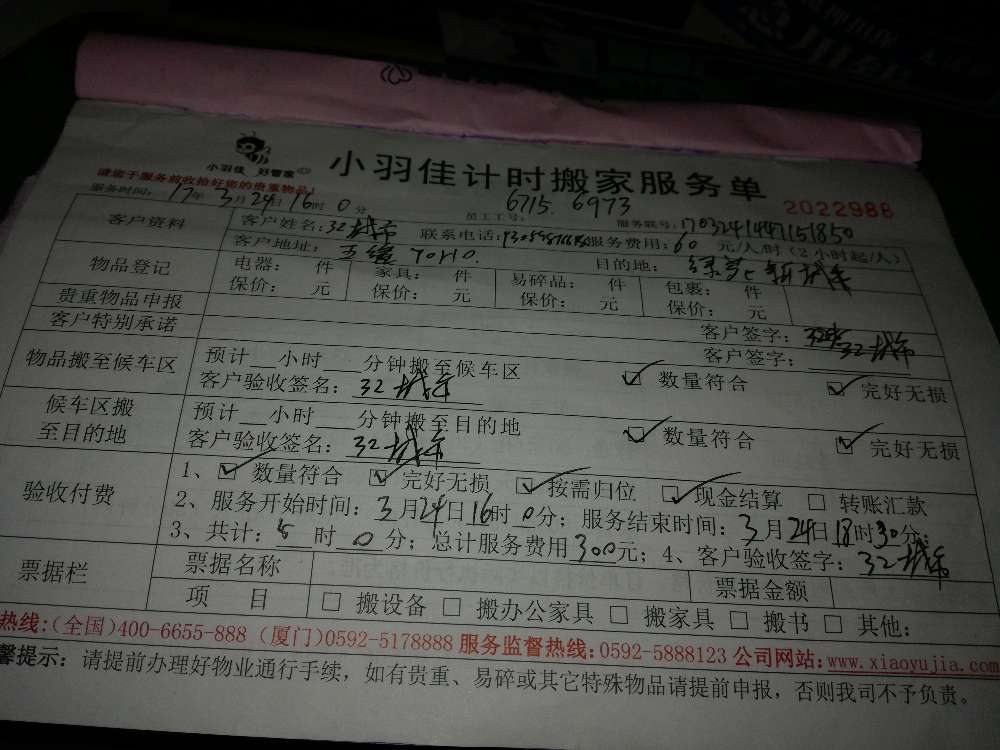 小羽佳 好管家
小羽佳计时搬家服务单
请您于服务前收拾好您的贵重物品！
6715. 6973
2022988
服务时间：17年3月24日16时0分 员工工号： 服务联号：1703241447151850
客户资料 客户姓名：32城市 联系电话： 服务费用：60 元/人/时（2小时起/人）
客户地址： 目的地：
物品登记 电器： 件 家具： 件 易碎品： 件 包裹： 件
保价： 元 保价： 元 保价： 元 保价： 元
贵重物品申报 客户签字：32城市
客户特别承诺 客户签字：
物品搬至候车区 预计 小时 分钟搬至候车区 ☑ 数量符合 ☑ 完好无损
客户验收签名：32城市
候车区搬至目的地 预计 小时 分钟搬至目的地 ☑ 数量符合 ☑ 完好无损
客户验收签名：32城市
验收付费 1、☑ 数量符合 ☑ 完好无损 ☑ 按需归位 ☑ 现金结算 □ 转账汇款
2、服务开始时间：3月24日16时0分；服务结束时间：3月24日18时30分；
3、共计： 时0分；总计服务费用300元；4、客户验收签字：32城市
票据栏 票据名称 票据金额
项 目 □ 搬设备 □ 搬办公家具 □ 搬家具 □ 搬书 □ 其他：
热线：(全国)400-6655-888 (厦门)0592-5178888 服务监督热线：0592-5888123 公司网站：www.xiaoyujia.com
馨提示：请提前办理好物业通行手续，如有贵重、易碎或其它特殊物品请提前申报，否则我司不予负责。